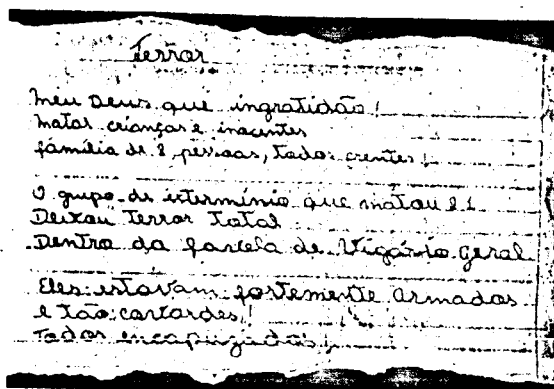 Terror
Meu Deus que ingratidão!
matar crianças e inocentes
família de 8 pessoas, todos crentes!
O grupo de extermínio que matou 21
Deixou Terror Total
Dentro da favela de Vigário Geral
Eles estavam fortemente armados
e tão covardes!
Todos encapuzados!